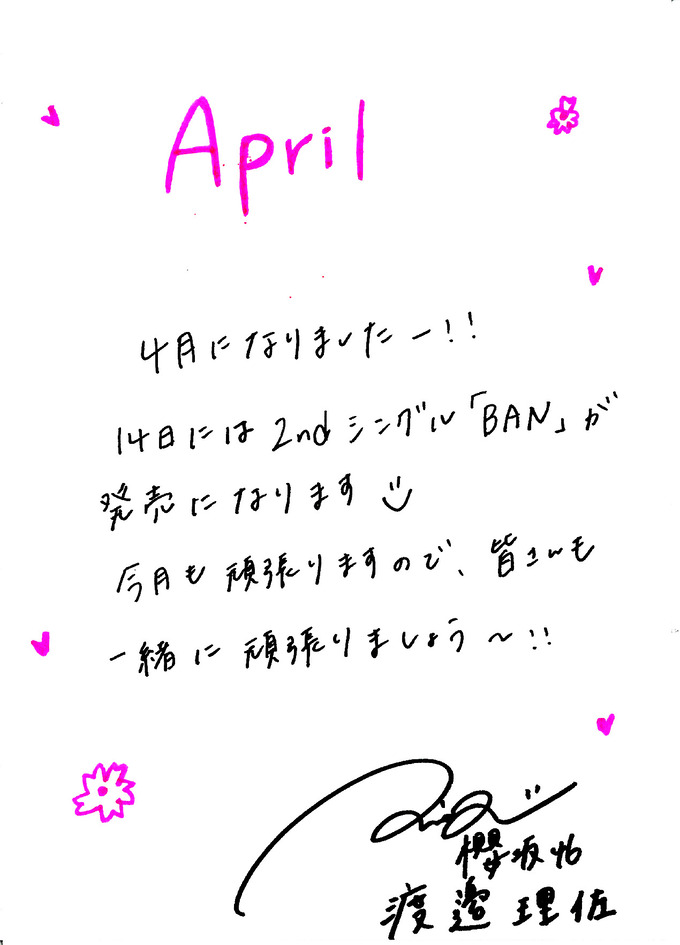 April
4月になりましたー!!
14日には2ndシングル「BAN」が
発売になります
今月も頑張りますので、皆さんも
一緒に頑張りましょう〜!!
櫻坂46
渡邉理佐